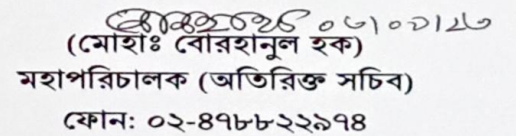 (মোহাঃ বোরহানুল হক)
মহাপরিচালক (অতিরিক্ত সচিব)
ফোন: ০২-৪৭৮৮২২৯৭৪